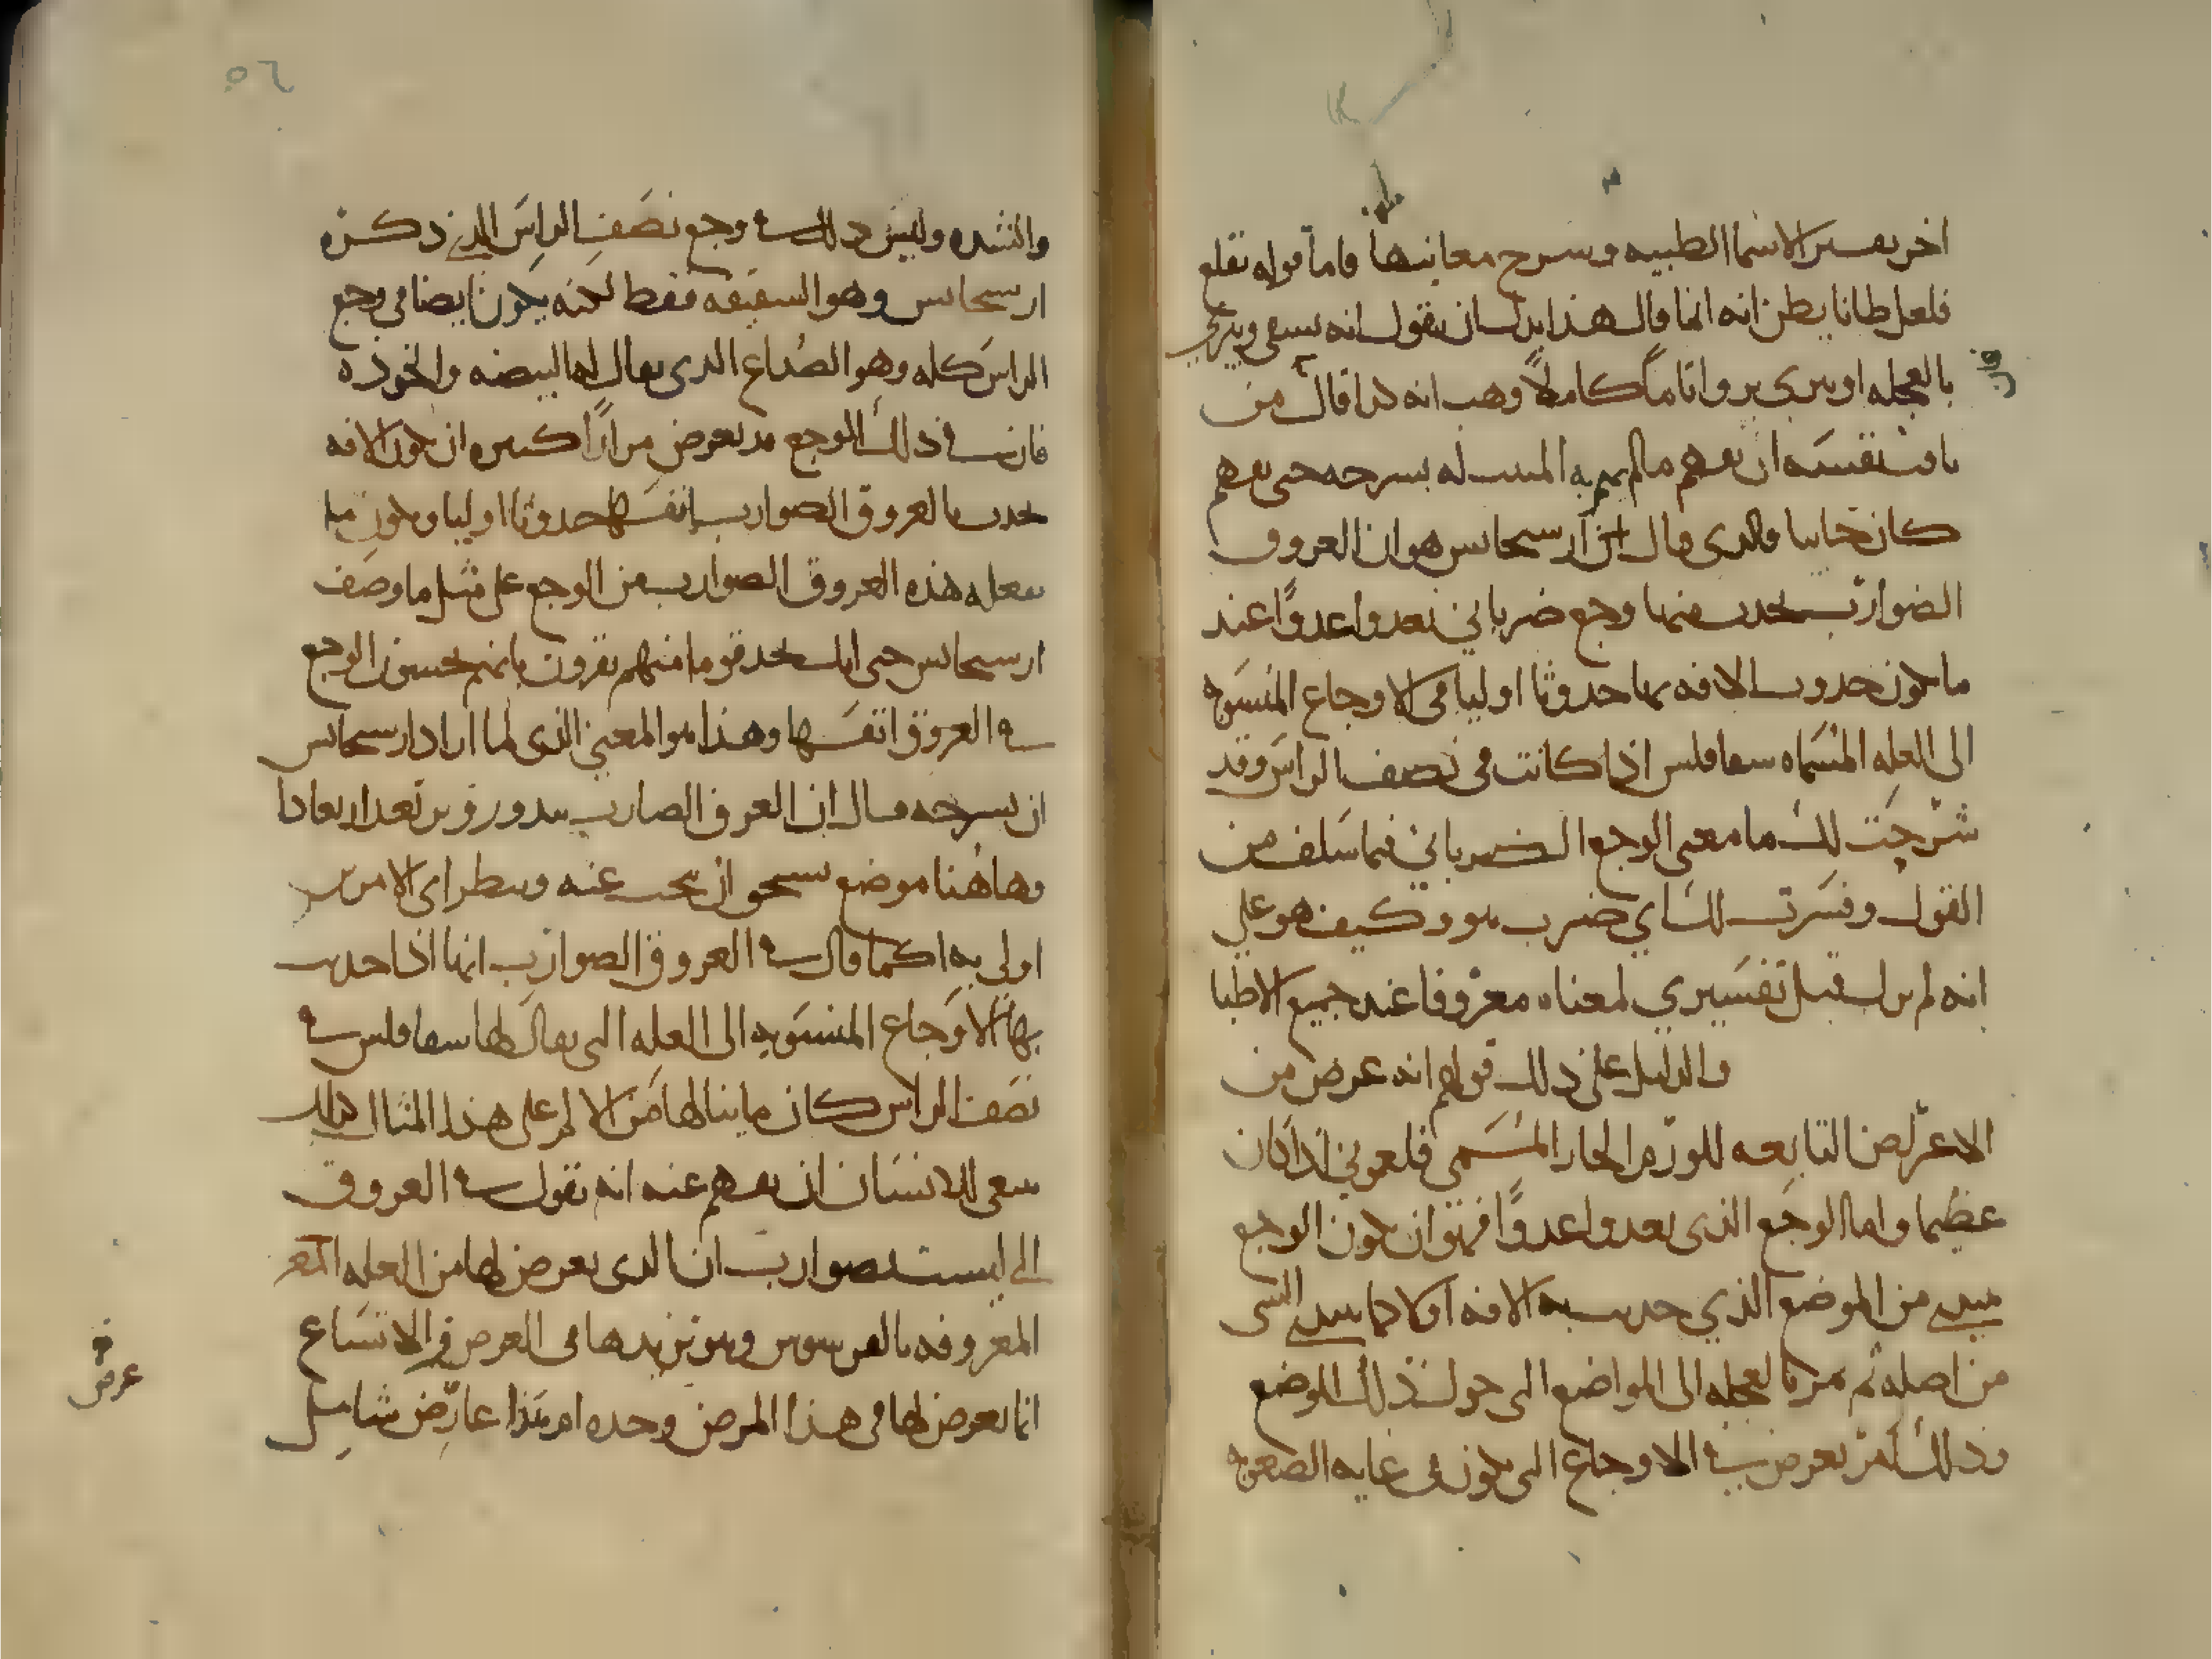 اخر تفسير الاسما الطبيه وشرح معانيها فاما قوله تقلع
فلعل ظانا يظن انه انما قال هذا بدل ان يقول انه يشفي ويبري
بالعجله او يبري بروا تاما كاملا وهب انه كذا قال من
نفسه ان يفهم مالم به المثبت له بشرحه حتى يفهم
كان خايبا والذي قال ارسجانس هو ان العروق
الضوارب يحدث منها وجع ضرباني يعدوا عدوا عند
ما يكون حدوث الافه بها حدوثا اوليا في الاوجاع المنسوبه
الى العله المسماه سفاقلس اذا كانت في نصف الراس وقد
شرحت لك ما معنى الوجع الضرباني فيما سلف من
القول وفسرت لك اي ضرب هو وكيف هو على
انه لم يزل قبل تفسيري لمعناه معروفا عند جميع الاطبا
والدليل على ذلك قولهم انه عرض من
الاعراض التابعه للورم الحار المسمى فلغموني اذا كان
عظيما واما الوجع الذي يعدوا عدوا فهو ان يكون الوجع
يبتدي من الموضع الذي حدثت به الافه اولا كما يبتدي الشي
من اصله ثم يمر بالعجله الى المواضع التي حول ذلك الموضع
وذلك امر يعرض في الاوجاع التي يكون في غايه الصعوبه
فان
٥٦
والشده وليس ذلك في وجع نصف الراس الذي ذكره
ارسجانس وهو الشقيقه فقط لكنه يكون ايضا في وجع
الراس كله وهو الصداع الذي يقال لها البيضه والخوذه
فان في ذلك الوجع قد يعرض مرارا كثيره ان يكون الافه
تحدث بالعروق الضوارب انفسها حدوثا اوليا ويكون ما
تفعله هذه العروق الضوارب من الوجع على مثل ما وصف
ارسجانس حتى انك تجد قوما منهم يقرون بانهم يحسون الوجع
في العروق انفسها وهذا هو المعنى الذي لما اراد ارسجانس
ان يشرحه قال ان العرق الضارب يبدو
وهاهنا موضع يستحق ان يبحث عنه وينظر اي الامرين
اولى به اكما قال في العروق الضوارب انها اذا حدثت
بها الاوجاع المنسوبه الى العله التي يقال لها سفاقلس في
نصف الراس كان ما ينالها من الالم على هذا المثال كذلك
ينبغي للانسان ان يفهم عنه انه يقول في العروق
التي ليست بضوارب ان الذي يعرض لها من العله المعر
المعروفه بالقرسوس وهو تزيدها في العرض والاتساع
انما يعرض لها في هذا المرض وحده ام هذا عارض شامل
عرض